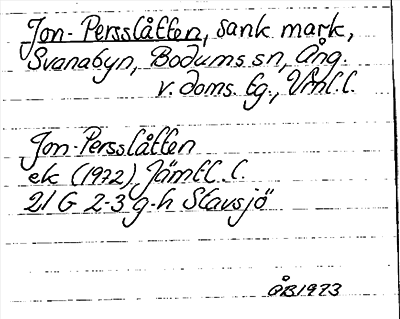 Jon-Persslåtten, sank mark,
Svanabyn, Bodums sn, Ång.
v. doms. tg., Vnl. l.
Jon-Persslåtten
ek (1972) Jämtl. l.
21 G 2-3 g-h Stavsjö
ÖB1973